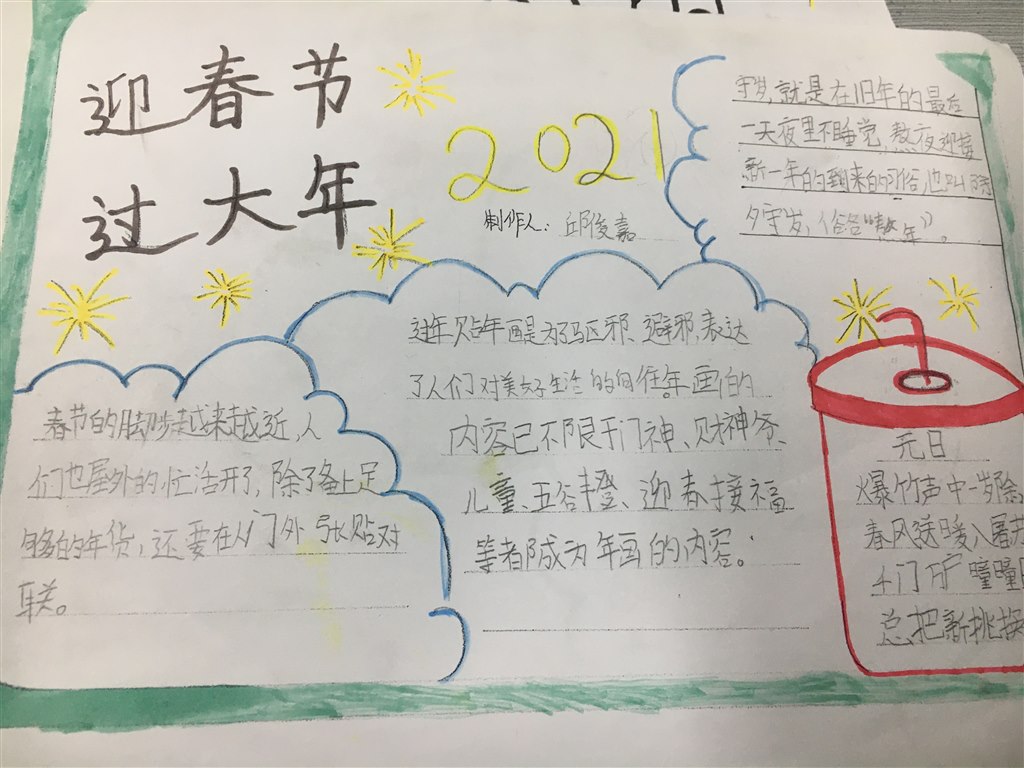 迎春节
过大年
2021
制作人：邱俊嘉
守岁，就是在旧年的最后
一天夜里不睡觉，熬夜迎接
新一年的到来的习俗，也叫除
夕守岁，俗名“熬年”。
春节的脚步越来越近，人
们也屋外的忙活开了，除了备上足
够的年货，还要在门外张贴对
联。
过年贴年画是为了驱邪、避邪，表达
了人们对美好生活的向往。年画的
内容已不限于门神、财神爷
儿童、五谷丰登、迎春接福
等都成为年画的内容。
元日
爆竹声中一岁除
春风送暖入屠苏
千门万户曈曈
总把新桃换